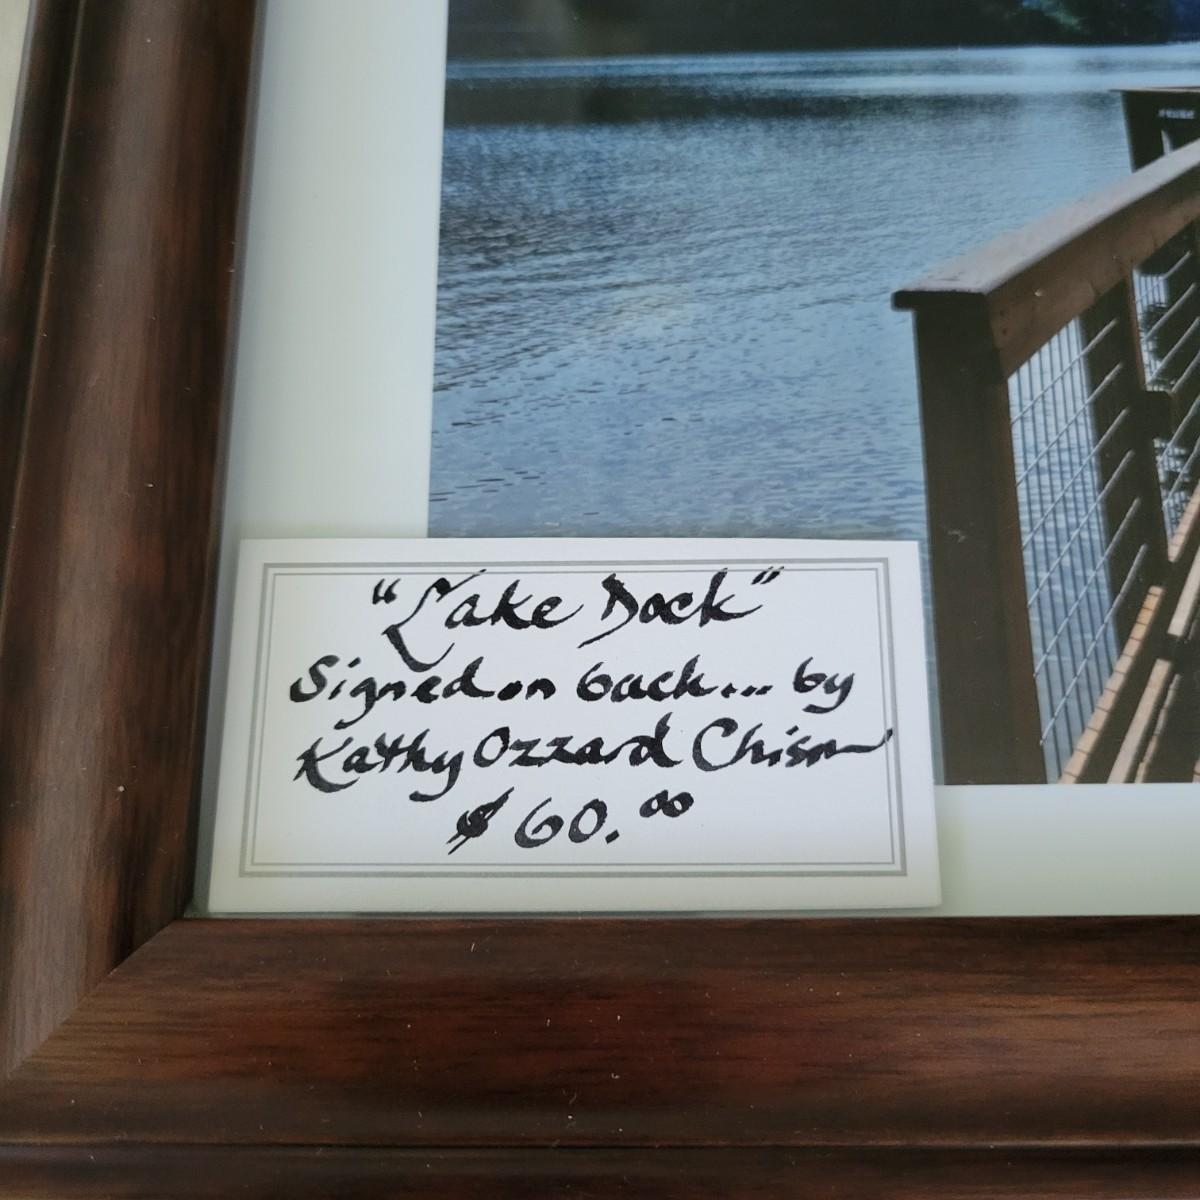 "Lake Dock"
Signed on back... by
Kathy Ozzard Chism
$60.00